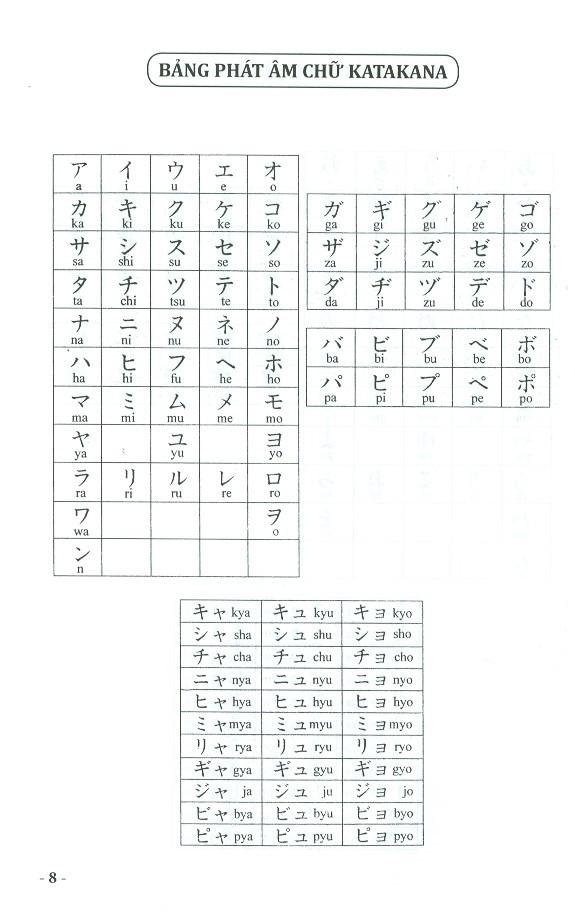 BẢNG PHÁT ÂM CHỮ KATAKANA
ア イ ウ エ オ
a i u e o
カ キ ク ケ コ
ka ki ku ke ko
サ シ ス セ ソ
sa shi su se so
タ チ ツ テ ト
ta chi tsu te to
ナ ニ ヌ ネ ノ
na ni nu ne no
ハ ヒ フ ヘ ホ
ha hi fu he ho
マ ミ ム メ モ
ma mi mu me mo
ヤ ユ ヨ
ya yu yo
ラ リ ル レ ロ
ra ri ru re ro
ワ ヲ
wa o
ン
n
ガ ギ グ ゲ ゴ
ga gi gu ge go
ザ ジ ズ ゼ ゾ
za ji zu ze zo
ダ ヂ ヅ デ ド
da ji zu de do
バ ビ ブ ベ ボ
ba bi bu be bo
パ ピ プ ペ ポ
pa pi pu pe po
キャ kya キュ kyu キョ kyo
シャ sha シュ shu ショ sho
チャ cha チュ chu チョ cho
ニャ nya ニュ nyu ニョ nyo
ヒャ hya ヒュ hyu ヒョ hyo
ミャ mya ミュ myu ミョ myo
リャ rya リュ ryu リョ ryo
ギャ gya ギュ gyu ギョ gyo
ジャ ja ジュ ju ジョ jo
ビャ bya ビュ byu ビョ byo
ピャ pya ピュ pyu ピョ pyo
- 8 -